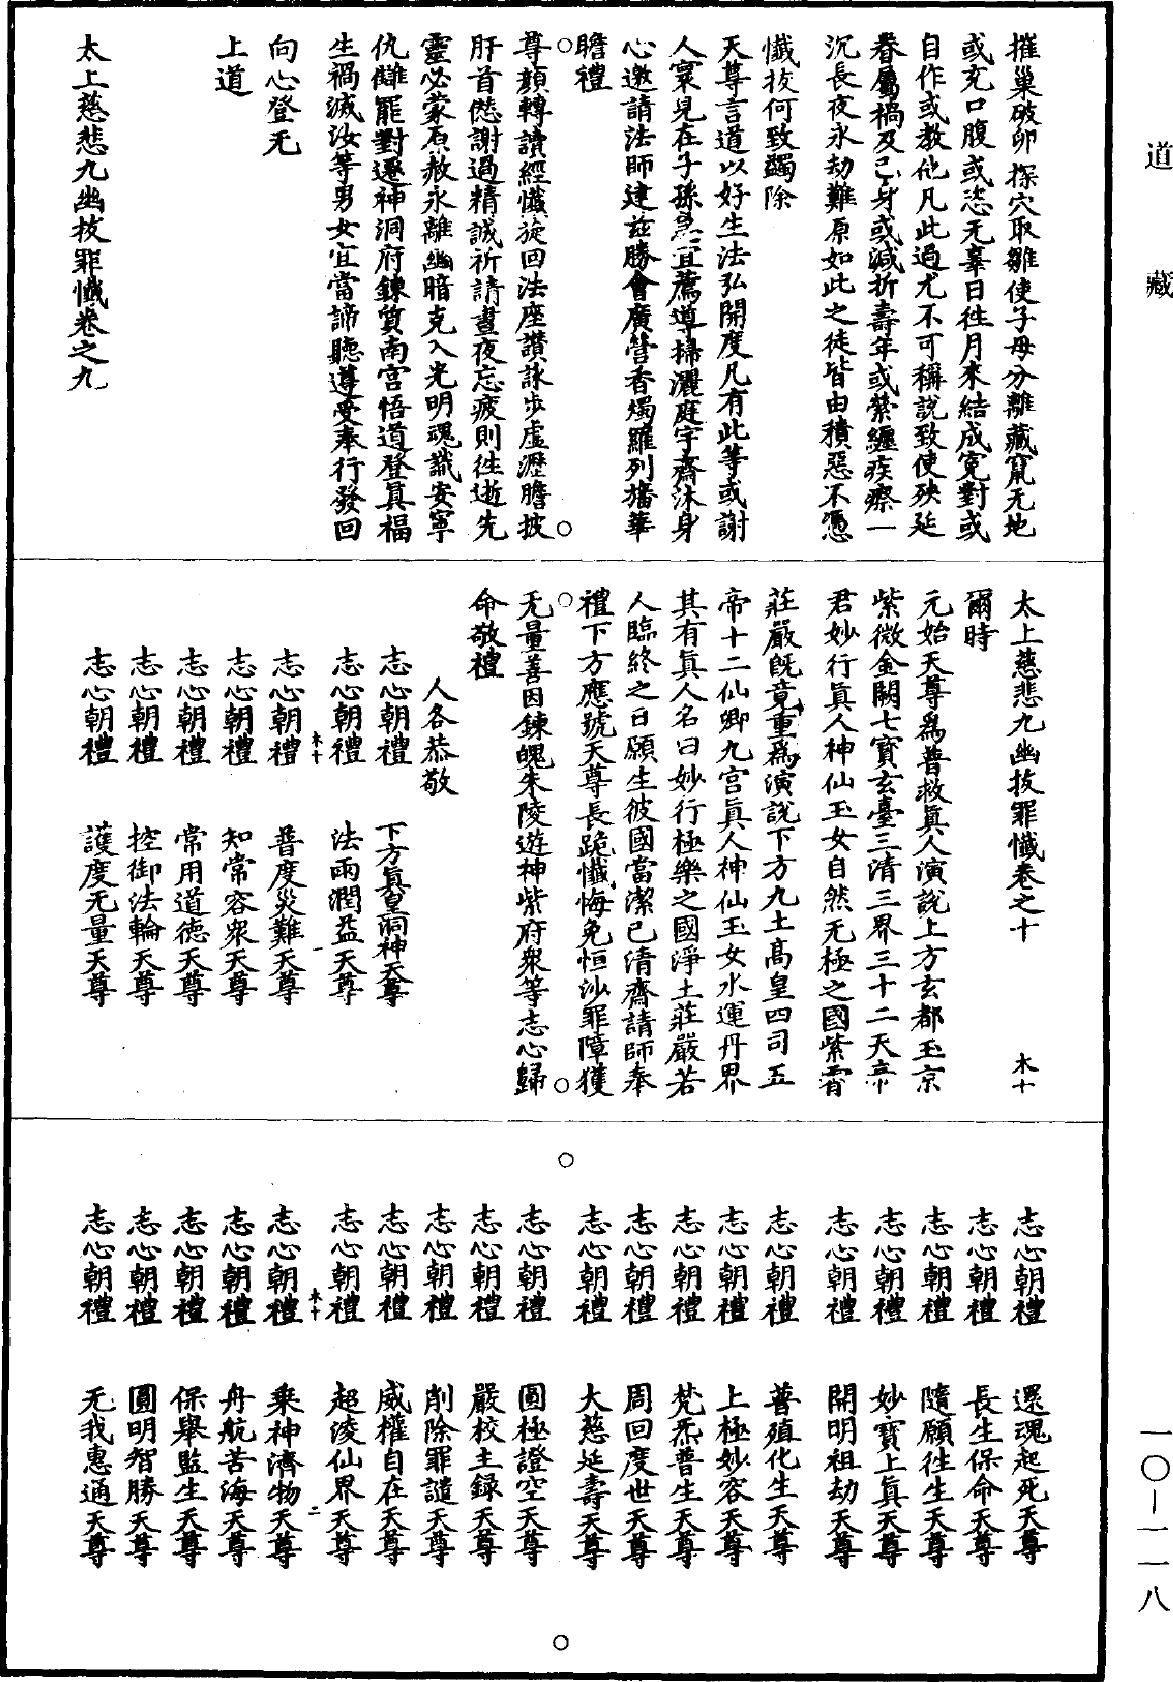 道藏
摧巢破卵探穴取雛使子母分離藏竄无地
或充口腹或恣无辜日徃月來結成寃對或
自作或教他凡此過尤不可稱說致使殃延
眷屬禍及己身或減折壽年或縈纏疾瘵一
沉長夜永劫難原如此之徒皆由積惡不憑
懴拔何致蠲除
天尊言道以好生法弘開度凡有此等或謝
人寰見在子孫急宜薦導掃灑庭宇齋沐身
心邀請法師建茲勝會廣營香燭羅列旛華
瞻禮
尊顏轉讀經懴旋回法座讚詠步虛瀝膽披
肝首愆謝過精誠祈請晝夜忘疲則徃逝先
靈必蒙原赦永離幽暗克入光明魂識安寧
仇讎罷對遷神洞府鍊質南宮悟道登真福
生禍滅汝等男女宜當諦聽遵受奉行發回
向心登无
上道
太上慈悲九幽拔罪懴卷之九
太上慈悲九幽拔罪懴卷之十 木十
爾時
元始天尊為普救真人演說上方玄都玉京
紫微金闕七寳玄臺三清三界三十二天帝
君妙行真人神仙玉女自然无極之國紫霄
莊嚴旣竟重為演說下方九土高皇四司五
帝十二仙卿九宮真人神仙玉女水運丹界
其有真人名曰妙行極樂之國淨土莊嚴若
人臨終之日願生彼國當潔已清齋請師奉
禮下方應號天尊長跪懴悔免恒沙罪障獲
无量善因鍊魄朱陵遊神紫府衆等志心歸
命敬禮
人各恭敬
志心朝禮 下方真皇洞神天尊
志心朝禮 法雨潤益天尊
木十 一
志心朝禮 普度災難天尊
志心朝禮 知常容衆天尊
志心朝禮 常用道德天尊
志心朝禮 控御法輪天尊
志心朝禮 護度无量天尊
志心朝禮 還魂起死天尊
志心朝禮 長生保命天尊
志心朝禮 隨願徃生天尊
志心朝禮 妙寳上真天尊
志心朝禮 開明祖劫天尊
志心朝禮 善殖化生天尊
志心朝禮 上極妙容天尊
志心朝禮 梵炁普生天尊
志心朝禮 周回度世天尊
志心朝禮 大慈延壽天尊
志心朝禮 圓極證空天尊
志心朝禮 嚴校主録天尊
志心朝禮 削除罪譴天尊
志心朝禮 威權自在天尊
志心朝禮 超淩仙界天尊
木十 二
志心朝禮 乗神濟物天尊
志心朝禮 舟航苦海天尊
志心朝禮 保舉監生天尊
志心朝禮 圓明智勝天尊
志心朝禮 无我惠通天尊
一〇—一一八